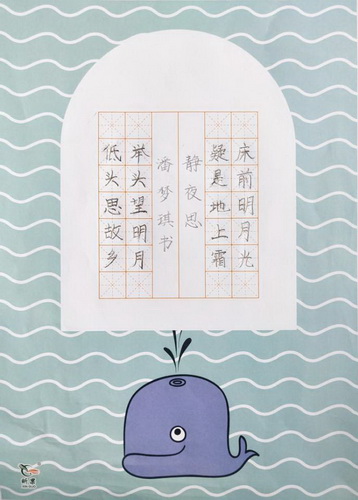 床前明月光
疑是地上霜
静夜思
潘梦琪书
举头望明月
低头思故乡